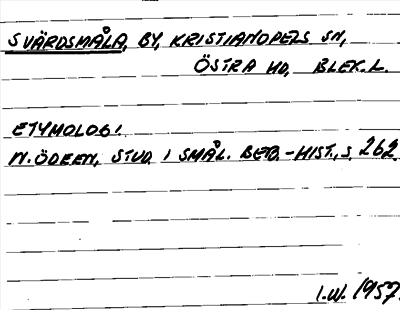 SVÄRDSMÅLA, BY, KRISTIANOPELS SN,
ÖSTRA HD, BLEK. L.
ETYMOLOGI
N. ÖDEEN, STUD. I SMÅL. BEB.-HIST., S. 262.
I.W. 1957.